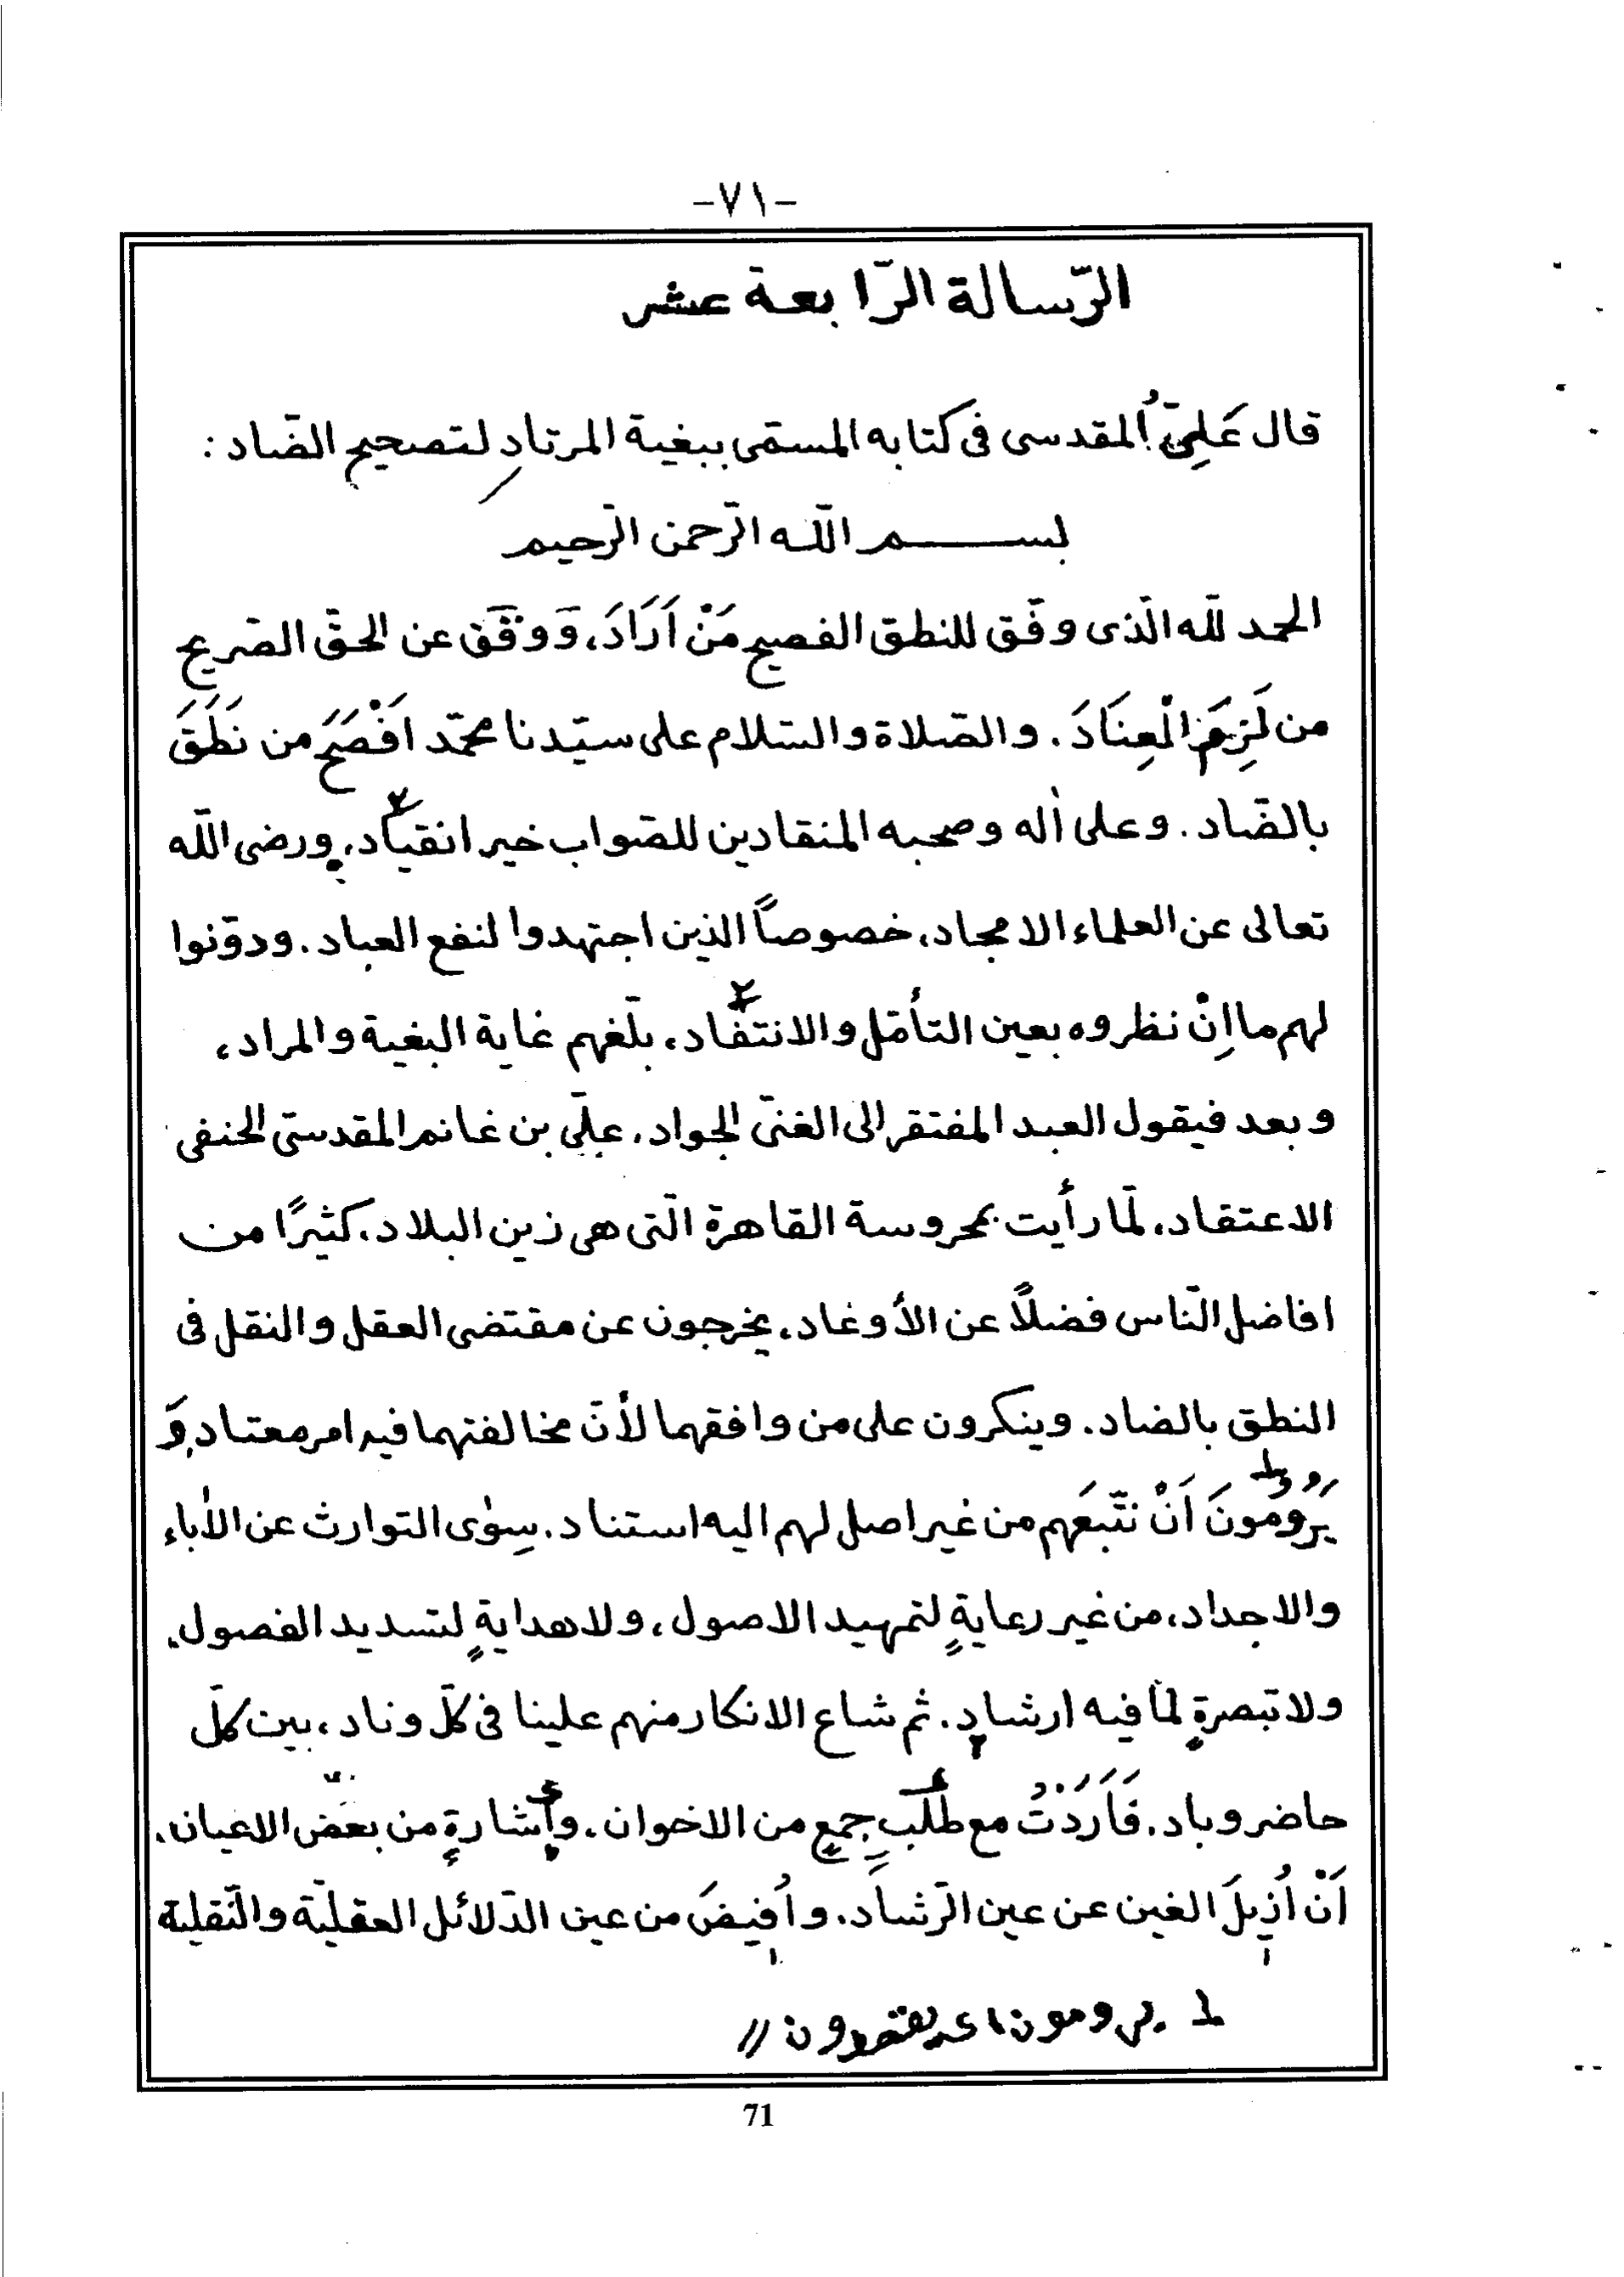 -٧١-
الرّسالة الرّابعة عشر
قال عَلِىّ ُالمقدسى فى كتابه المسمّى ببغية المرتادِ لتصحيح الضّاد :
بســــــم اللّٰه الرّحمن الرّحيم
الحمد للّٰه الّذى وفّق للنطق الفصيح مَنْ اَرَادَ، وَوَقَّفَ عن الحقّ الصّريح
من لَزِمَ الْعِنَادَ . والصّلاة والسّلام على سيّدنا محمّد اَفْصَحَ من نَطَقَ
بالضّاد . وعلى اٰله وصحبه المنقادين للصّواب خير انقياد، ورضى اللّٰه
تعالى عن العلماء الامجاد، خصوصاً الذين اجتهدوا لنفع العباد . ودوّنوا
لهم ما اِنْ نظروه بعين التأمّل والانتقاد، بلّغهم غاية البغية والمراد،
وبعد فيقول العبد المفتقر الى الغنىّ الجواد، علىّ بن غانم المقدسىّ الحنفى
الاعتقاد، لمّا رأيت بمحروسة القاهرة الّتى هى زين البلاد، كثيرًا من
افاضل النّاس فضلًا عن الأوغاد، يخرجون عن مقتضى العقل والنقل فى
النطق بالضاد . وينكرون على من وافقهما لأنّ مخالفتهما فيه امر معتاد، وَ
يَرُومُونَ اَنْ نتّبَعَهم من غير اصل لهم اليه استناد . سِوٰى التوارث عن الأٰباء
والاجداد، من غير رعايةٍ لتمهيد الاصول، ولا هدايةٍ لتسديد الفصول،
ولا تبصرةٍ لما فيه ارشادٍ . ثم شاع الانكار منهم علينا فى كلّ وناد، بين كلّ
حاضر وباد . فَاَرَدْتُ مع طلبِ جمعٍ من الاخوان، وإشارةٍ من بعض الاعيان،
اَنْ اُزِيلَ الغين عن عين الرّشاد، واُفِيضَ من عين الدّلائل العقليّة والنّقلية
١ يرومون، اى يقصدون //
71